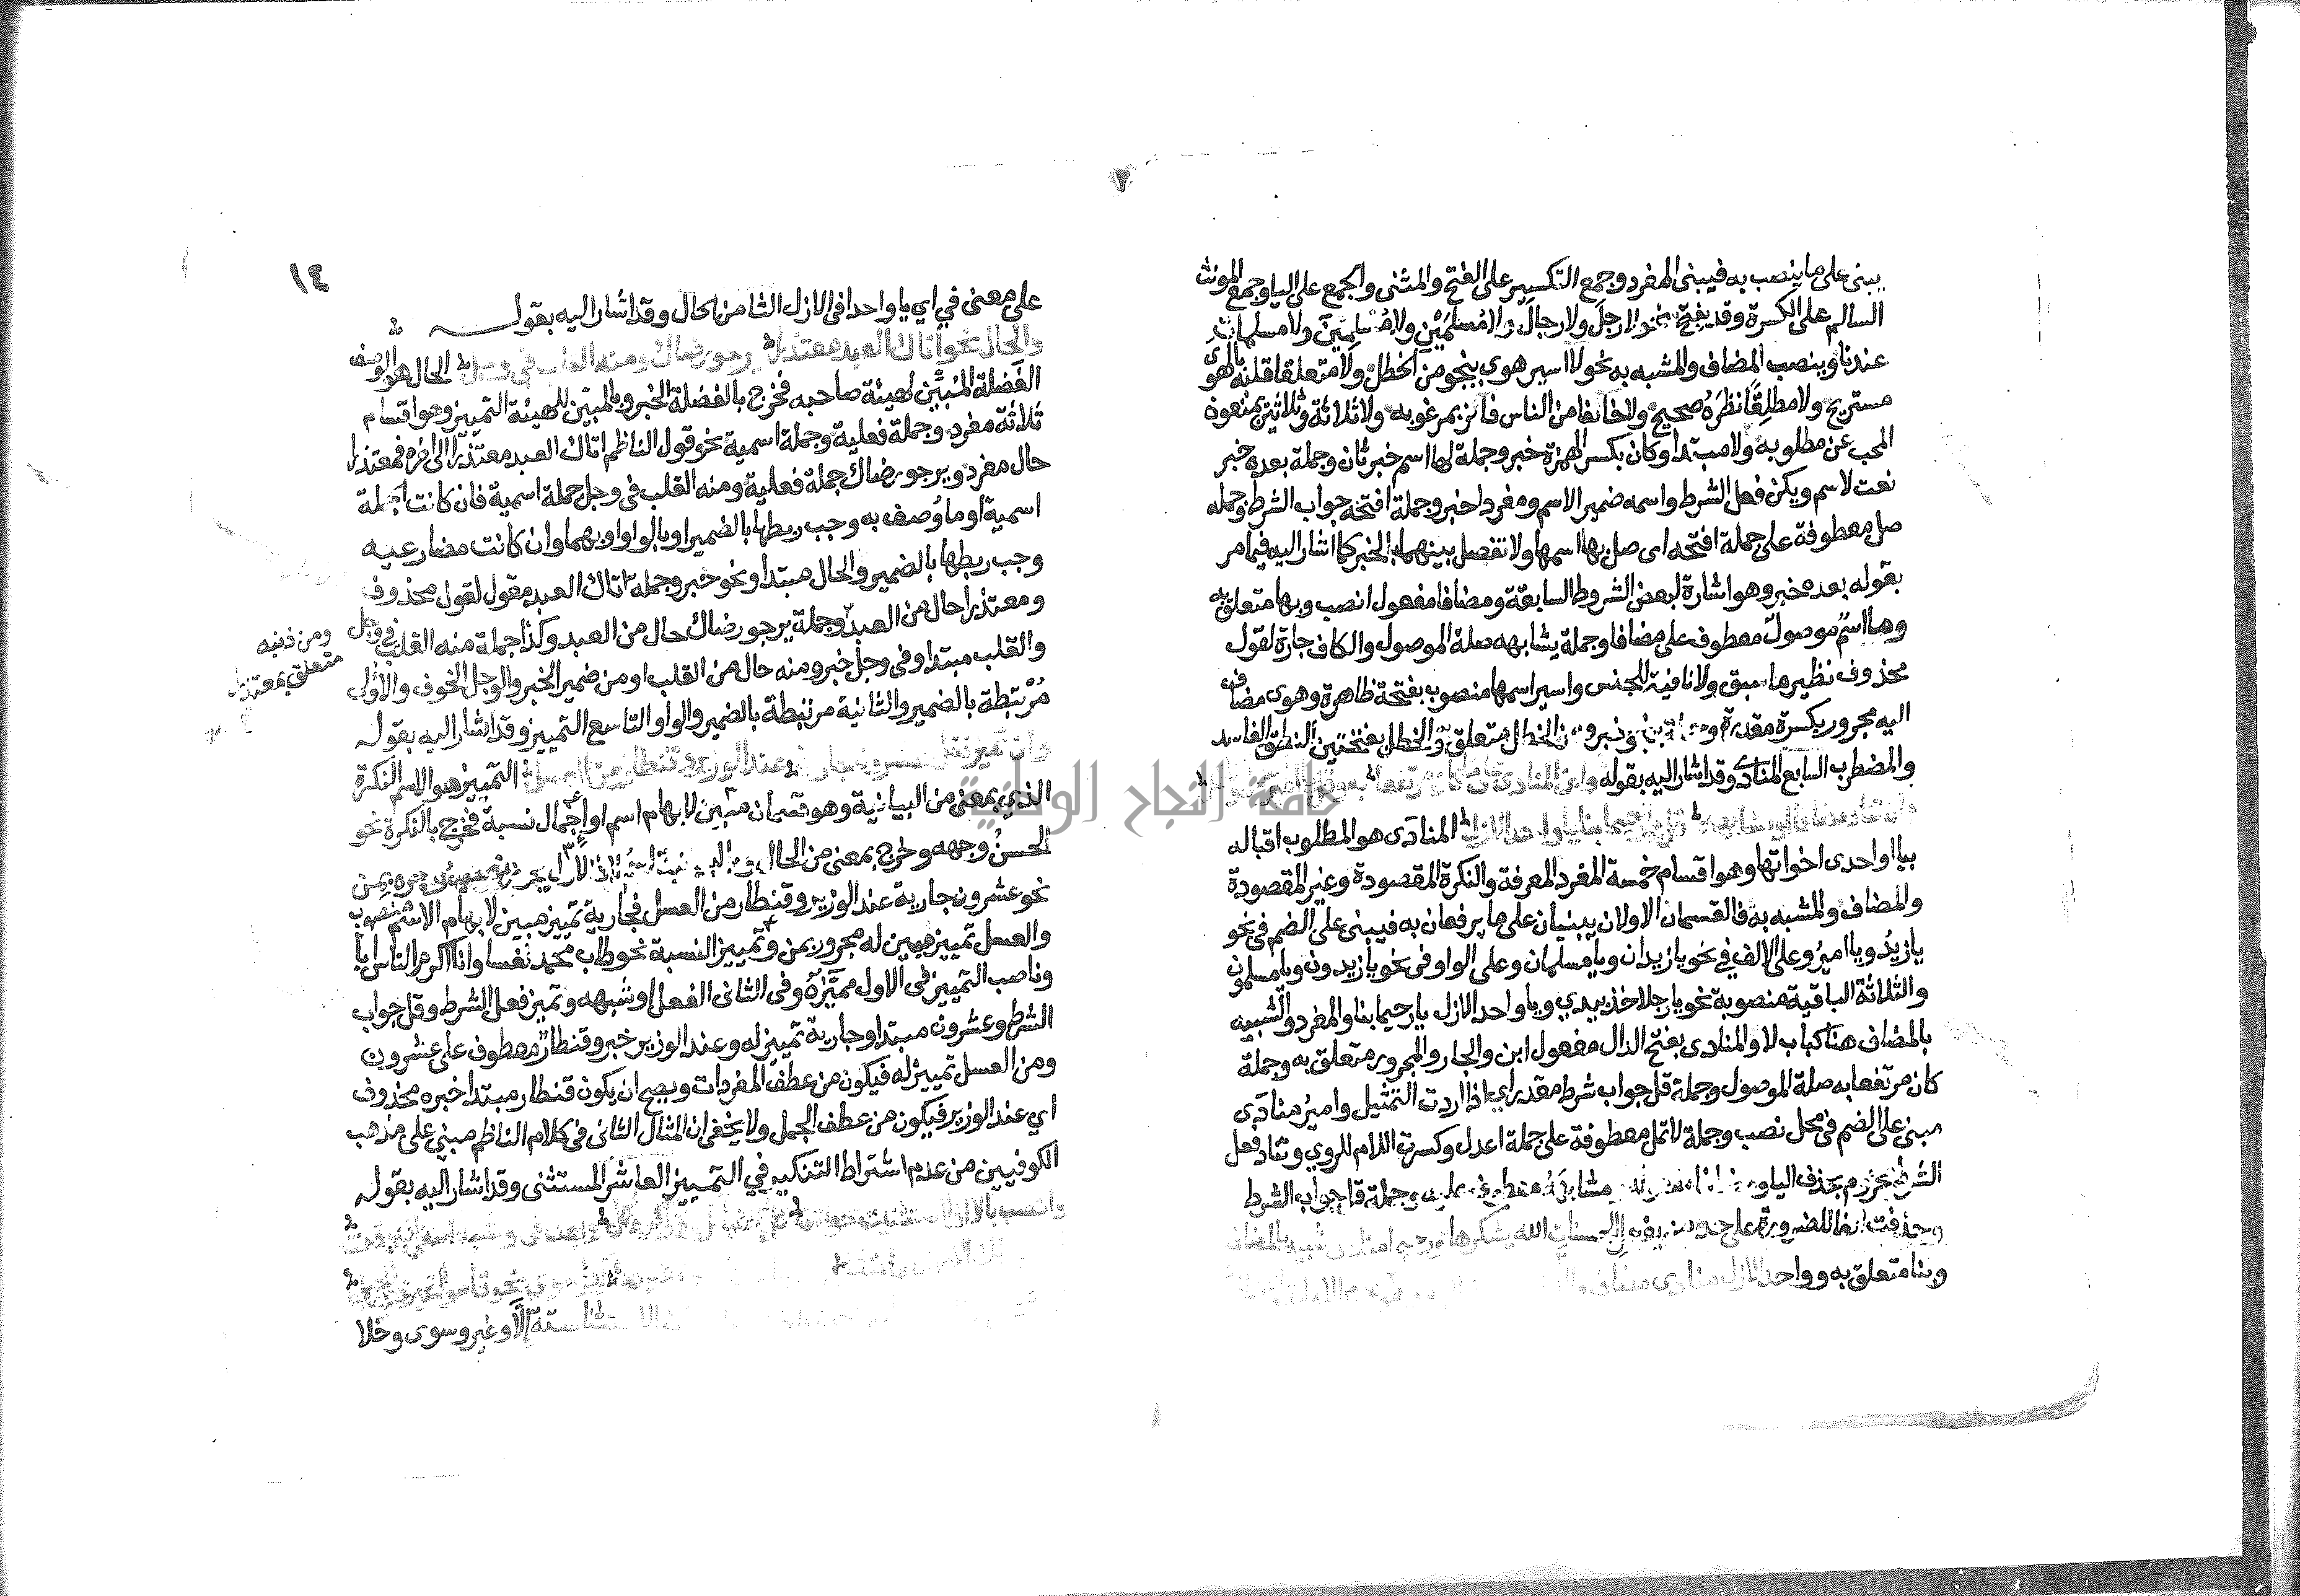 يبنى على ما ينصب به فيبنى المفرد وجمع التكسير على الفتح والمثنى والجمع على اليا وجمع المونث
السالم على الكسرة وقد يفتح نحو لا رجلَ ولا رجالَ ولا مُسلمَيْن ولا مُسلِمِينَ ولا مسلمات
عندنا وينصب المضاف والمشبه به نحو لا اسير هوى ينجو من الخطل ولا متعلقا قلبه بالهوى
مستريح ولا مطلِقًا نظرَهُ صحيح ولا خائفا من الناس فائز بمرغوبه ولا ثلاثة وثلاثين يمنعون
المحب عن مطلوبه ولا مبتدا وكان بكسر الهمزة خبر وجملة لها اسم خبر ثان وجملة بعده خبر
نعت لاسم ويكن فعل الشرط واسمه ضمير الاسم ومفردا خبر وجملة افتحه جواب الشرط وجمله
صل معطوفة على جملة افتحه اى صل بها اسمها ولا تفصل بينهما بالخبر كما اشار اليه فيما مر
بقوله بعده خبر وهو اشارة لبعض الشروط السابقة ومضافا مفعول انصب وبها متعلق به
وما اسم موصول معطوف على مضافا وجملة يشابهه صلة الموصول والكاف جارة لقول
محذوف نظير ما سبق ولا نافية للجنس واسير اسمها منصوب بفتحة ظاهرة وهوى مضاف
اليه مجرور بكسرة مقدرة وجملة ينجو خبر ومن الخطل متعلق به والخطل بفتحتين النطق الفاسد
والمضطرب السابع المنادى وقد اشار اليه بقوله وابن المنادى على ما كان مرتفعا به
قل يا رحيما بنا يا واحد الازل المنادَى هو المطلوب اقباله
بيا او احدى اخواتها وهو اقسام خمسة المفرد المعرفة والنكرة المقصودة وغير المقصودة
والمضاف والمشبه به فالقسمان الاولان يبنيان على ما يرفعان به فيبنى على الضم فى نحو
يا زيدُ ويا اميرُ وعلى الالف في نحو يا زيدان ويا مسلمان وعلى الواو فى نحو يا زيدون ويا مسلمون
والثلاثة الباقية منصوبة نحو يا رجلا خذ بيدي ويا واحد الازل يا رحيما بنا والمفرد والشبيه
بالمضاف هنا كباب لا والمنادى بفتح الدال مفعول ابن والجار والمجرور متعلق به وجملة
كان مرتفعا به صلة الموصول وجملة قل جواب شرط مقدر اي اذا اردت التمثيل واميرُ منادَى
مبنى على الضم فى محل نصب وجملة لا تمل معطوفة على جملة اعدل وكسرت اللام للروي وتناد فعل
الشرط مجزوم بحذف اليا ومشابهه معطوف عليه وجملة قل جواب الشرط
وحذفت الفا للضرورة على حد من يفعل الحسنات الله يشكرها ورحيما منادى شبيه بالمضاف
وبنا متعلق به وواحد الازل منادى مضاف
١٤
على معنى في اي يا واحدا فى الازل الثامن الحال وقد اشار اليه بقوله
والحال نحو اتاك العبد معتذرا يرجو رضاك ومنه القلب فى وجل الحال هو الوصف
الفضلة المُبَيِّن لهيئة صاحبه فخرج بالفضلة الخبر وبالمبيّن للهيئة التمييز وهو اقسام
ثلاثة مفرد وجملة فعلية وجملة اسمية نحو قول الناظم اتاك العبد معتذرا الى اخره فمعتذرا
حال مفرد ويرجو رضاك جملة فعلية ومنه القلب فى وجل جملة اسمية فان كانت الجملة
اسمية او ماوُصف به وجب ربطها بالضمير او بالواو او بهما وان كانت مضارعيه
وجب ربطها بالضمير والحال مبتدأ ونحو خبر وجملة اتاك العبد مقول لقول محذوف
ومعتذرا حال من العبد وجملة يرجو رضاك حال من العبد وكذا جملة منه القلب فى وجل
ومن ذنبه
متعلق بمعتذرا
والقلب مبتدا وفى وجل خبر ومنه حال من القلب او من ضمير الخبر والوجل الخوف والأولى
مُرْتبطة بالضمير والثانية مرتبطة بالضمير والواو التاسع التمييز وقد اشار اليه بقوله
وعند الوزير وقنطار من العسل التمييز هو الاسم النكرة
الذي بمعنى من البيانية وهو قسمان مبين لابهام اسم او اجمال نسبة فخرج بالنكرة نحو
الحسنُ وجهه وخرج بمعنى من الحال
نحو عشرون جارية عند الوزير وقنطار من العسل فجارية تمييز مبين لابهام الاسم منصوب
والعسل تمييز مبين له مجرور بمن وتمييز النسبة نحو طاب محمد نفسا وانا اكرم الناس ابا
وناصب التمييز فى الاول مميَّزُهُ وفى الثانى الفعل او شبهه وتميز فعل الشرط وقل جواب
الشرط وعشرون مبتدا وجارية تمييز له وعند الوزير خبر وقنطارٌ معطوف على عشرون
ومن العسل تمييز له فيكون من عطف المفردات ويصح ان يكون قنطار مبتدا خبره محذوف
اي عند الوزير فيكون من عطف الجمل ولا يخفى ان المثال الثانى فى كلام الناظم مبني على مذهب
الكوفيين من عدم اشتراط التنكير في التمييز العاشر المستثنى وقد اشار اليه بقوله
وانصب بالا
ستة إلّا وغير وسوى وخلا
جامعة النجاح الوطنية